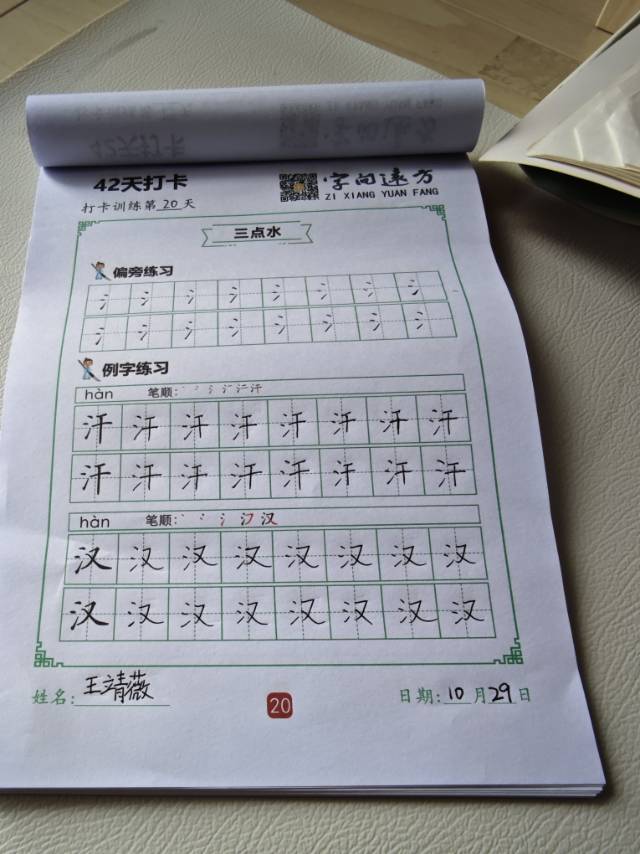 42天打卡
字向远方
ZI XIANG YUAN FANG
打卡训练第 20 天
三点水
偏旁练习
氵 氵 氵 氵 氵 氵 氵 氵
氵 氵 氵 氵 氵 氵 氵 氵
例字练习
hàn 笔顺:
汗 汗 汗 汗 汗 汗 汗 汗
汗 汗 汗 汗 汗 汗 汗 汗
hàn 笔顺:
汉 汉 汉 汉 汉 汉 汉 汉
汉 汉 汉 汉 汉 汉 汉 汉
姓名: 王靖薇
20
日期: 10 月 29 日